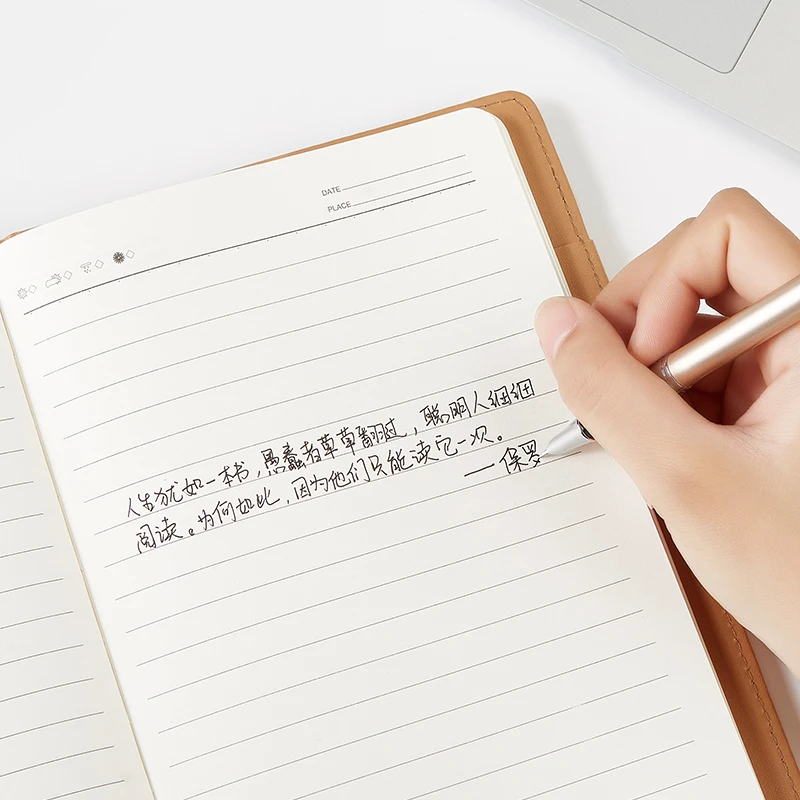 DATE
PLACE
人生犹如一本书，愚蠢者草草翻过，聪明人细细
阅读。为何如此，因为他们只能读它一次。
— 保罗